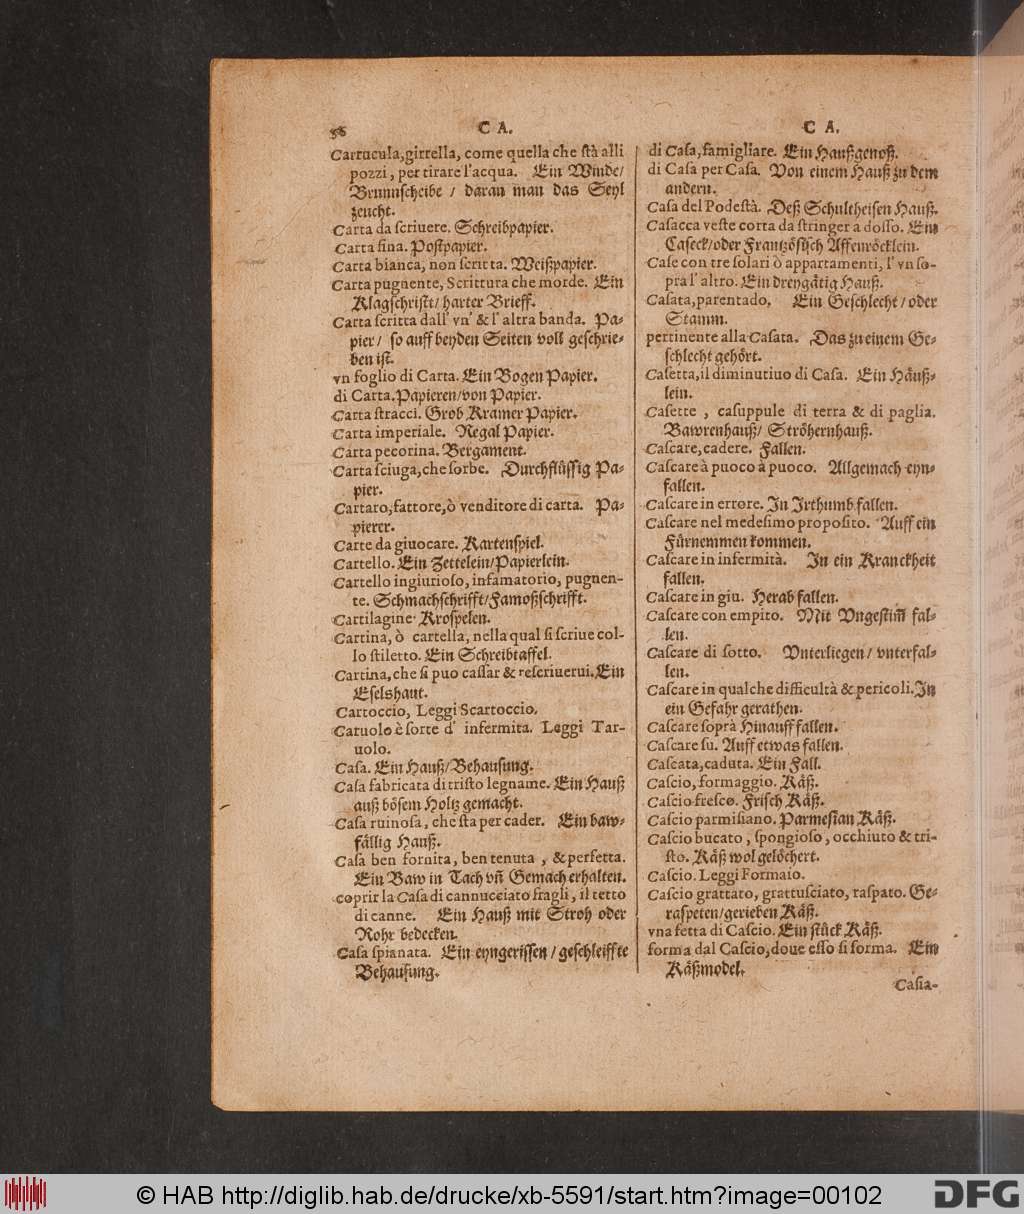 56
C A.
Carrucula, girrella, come quella che ſtà alli
pozzi, per tirare l'acqua. Ein Winde/
Brunnſcheibe / daran man das Seyl
zeucht.
Carta da ſcriuere. Schreibpapier.
Carta fina. Poſtpapier.
Carta bianca, non ſcritta. Weißpapier.
Carta pugnente, Scrittura che morde. Ein
Klagſchrifft/ harter Brieff.
Carta ſcritta dall' vn' & l' altra banda. Pa-
pier/ ſo auff beyden Seiten voll geſchrie-
ben iſt.
vn foglio di Carta. Ein Bogen Papier.
di Carta. Papieren/von Papier.
Carta ſtracci. Grob Kramer Papier.
Carta imperiale. Regal Papier.
Carta pecorina. Bergament.
Carta ſciuga, che ſorbe. Durchflüſſig Pa-
pier.
Cartaro, fattore, ò venditore di carta. Pa-
pierer.
Carte da giuocare. Kartenſpiel.
Cartello. Ein Zettelein/Papierlein.
Cartello ingiurioſo, infamatorio, pugnen-
te. Schmachſchrifft/Famoßſchrifft.
Cartilagine. Kroſpelen.
Cartina, ò cartella, nella qual ſi ſcriue col-
lo ſtiletto. Ein Schreibtaffel.
Cartina, che ſi puo caſſar & reſcriuerui. Ein
Eſelshaut.
Cartoccio, Leggi Scartoccio.
Caruolo è ſorte d' infermita. Leggi Tar-
uolo.
Caſa. Ein Hauß/Behauſung.
Caſa fabricata di triſto legname. Ein Hauß
auß böſem Holtz gemacht.
Caſa ruinoſa, che ſta per cader. Ein baw-
fällig Hauß.
Caſa ben fornita, ben tenuta, & perfetta.
Ein Baw in Tach vñ Gemach erhalten.
coprir la Caſa di cannucciato fragli, il tetto
di canne. Ein Hauß mit Stroh oder
Rohr bedecken.
Caſa ſpianata. Ein eyngeriſſen / geſchleiffte
Behauſung.
C A.
di Caſa, famigliare. Ein Haußgenoß.
di Caſa per Caſa. Von einem Hauß zu dem
andern.
Caſa del Podeſtà. Deß Schultheiſen Hauß.
Caſacca veſte corta da ſtringer a doſſo. Ein
Caſeck/oder Frantzöſiſch Affenröcklein.
Caſe con tre ſolari ò appartamenti, l' vn ſo-
pra l' altro. Ein dreygätig Hauß.
Caſata, parentado. Ein Geſchlecht / oder
Stamm.
pertinente alla Caſata. Das zu einem Ge-
ſchlecht gehört.
Caſetta, il diminutiuo di Caſa. Ein Häuß-
lein.
Caſette, caſuppule di terra & di paglia.
Bawrenhauß/ Ströhernhauß.
Caſcare, cadere. Fallen.
Caſcare à puoco à puoco. Allgemach eyn-
fallen.
Caſcare in errore. In Irthumb fallen.
Caſcare nel medeſimo propoſito. Auff ein
Fürnemmen kommen.
Caſcare in infermità. In ein Kranckheit
fallen.
Caſcare in giu. Herab fallen.
Caſcare con empito. Mit Vngeſtim̃ fal-
len.
Caſcare di ſotto. Vnterliegen / vnterfal-
len.
Caſcare in qualche difficultà & pericoli. In
ein Gefahr gerathen.
Caſcare ſoprà Hinauff fallen.
Caſcare ſu. Auff etwas fallen.
Caſcata, caduta. Ein Fall.
Caſcio, formaggio. Käß.
Caſcio freſco. Friſch Käß.
Caſcio parmiſiano. Parmeſian Käß.
Caſcio bucato, ſpongioſo, occhiuto & tri-
ſto. Käß wol gelöchert.
Caſcio. Leggi Formaio.
Caſcio grattato, grattuſciato, raſpato. Ge-
raſpeten/gerieben Käß.
vna fetta di Caſcio. Ein ſtück Käß.
forma dal Caſcio, doue eſſo ſi forma. Ein
Käßmodel.
Caſia-
© HAB http://diglib.hab.de/drucke/xb-5591/start.htm?image=00102
DFG